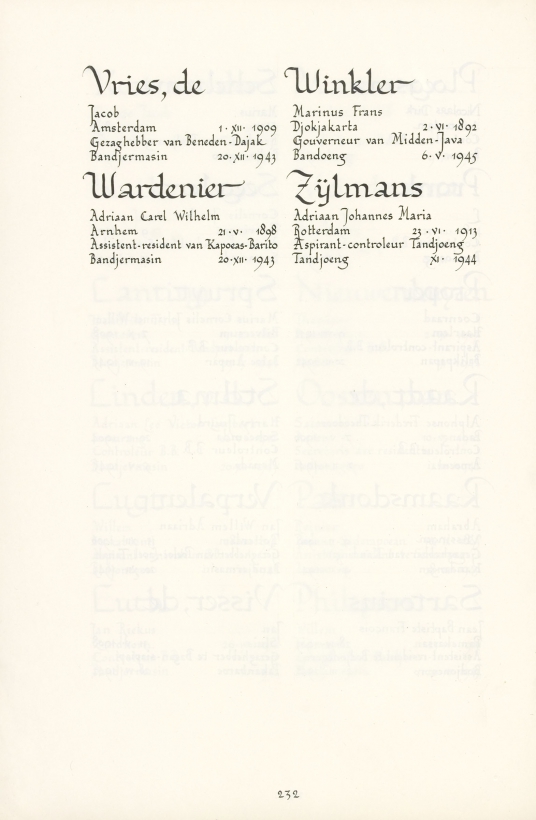 Vries, de
Jacob
Amsterdam 1 · XII · 1909
Gezaghebber van Beneden-Dajak
Bandjermasin 20 · XII · 1943
Wardenier
Adriaan Carel Wilhelm
Arnhem 21 · V · 1898
Assistent-resident van Kapoeas-Barito
Bandjermasin 20 · XII · 1943
Winkler
Marinus Frans
Djokjakarta 2 · VI · 1892
Gouverneur van Midden-Java
Bandoeng 6 · V · 1945
Zÿlmans
Adriaan Johannes Maria
Rotterdam 23 · VI · 1913
Aspirant-controleur Tandjoeng
Tandjoeng XI · 1944
232